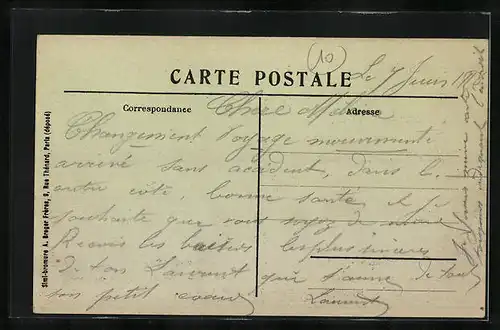 (10)
CARTE POSTALE
Le 7 Juin
Correspondance
Adresse
Chère
Changement Voyage mouvementé
arrivé sans accident, dans l
autre côté, bonne santé et je
souhaite que vous soyez de même
Reçois les baisers les plus sincères
de ton Laurent qui t'aime de tout
son petit coeur
Laurent
Simi-bromure A. Breger Frères, 9, Rue Thénard, Paris (déposé)